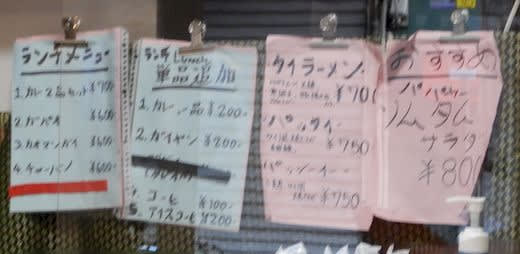 ランチメニュー
1. カレー2品セット ¥700
2. ガパオ ¥600
3. カオマンガイ ¥600
4. チャーハン ¥600
ランチ Lunch
単品追加
1. カレー一品 ¥200-
2. ガイヤン ¥200-
コーヒ ¥100-
アイスコーヒ ¥200-
タイラーメン
¥700
パッタイ
¥750
パッシーイー
¥750
おすすめ
パパイヤ
ソムタム
サラダ
¥800